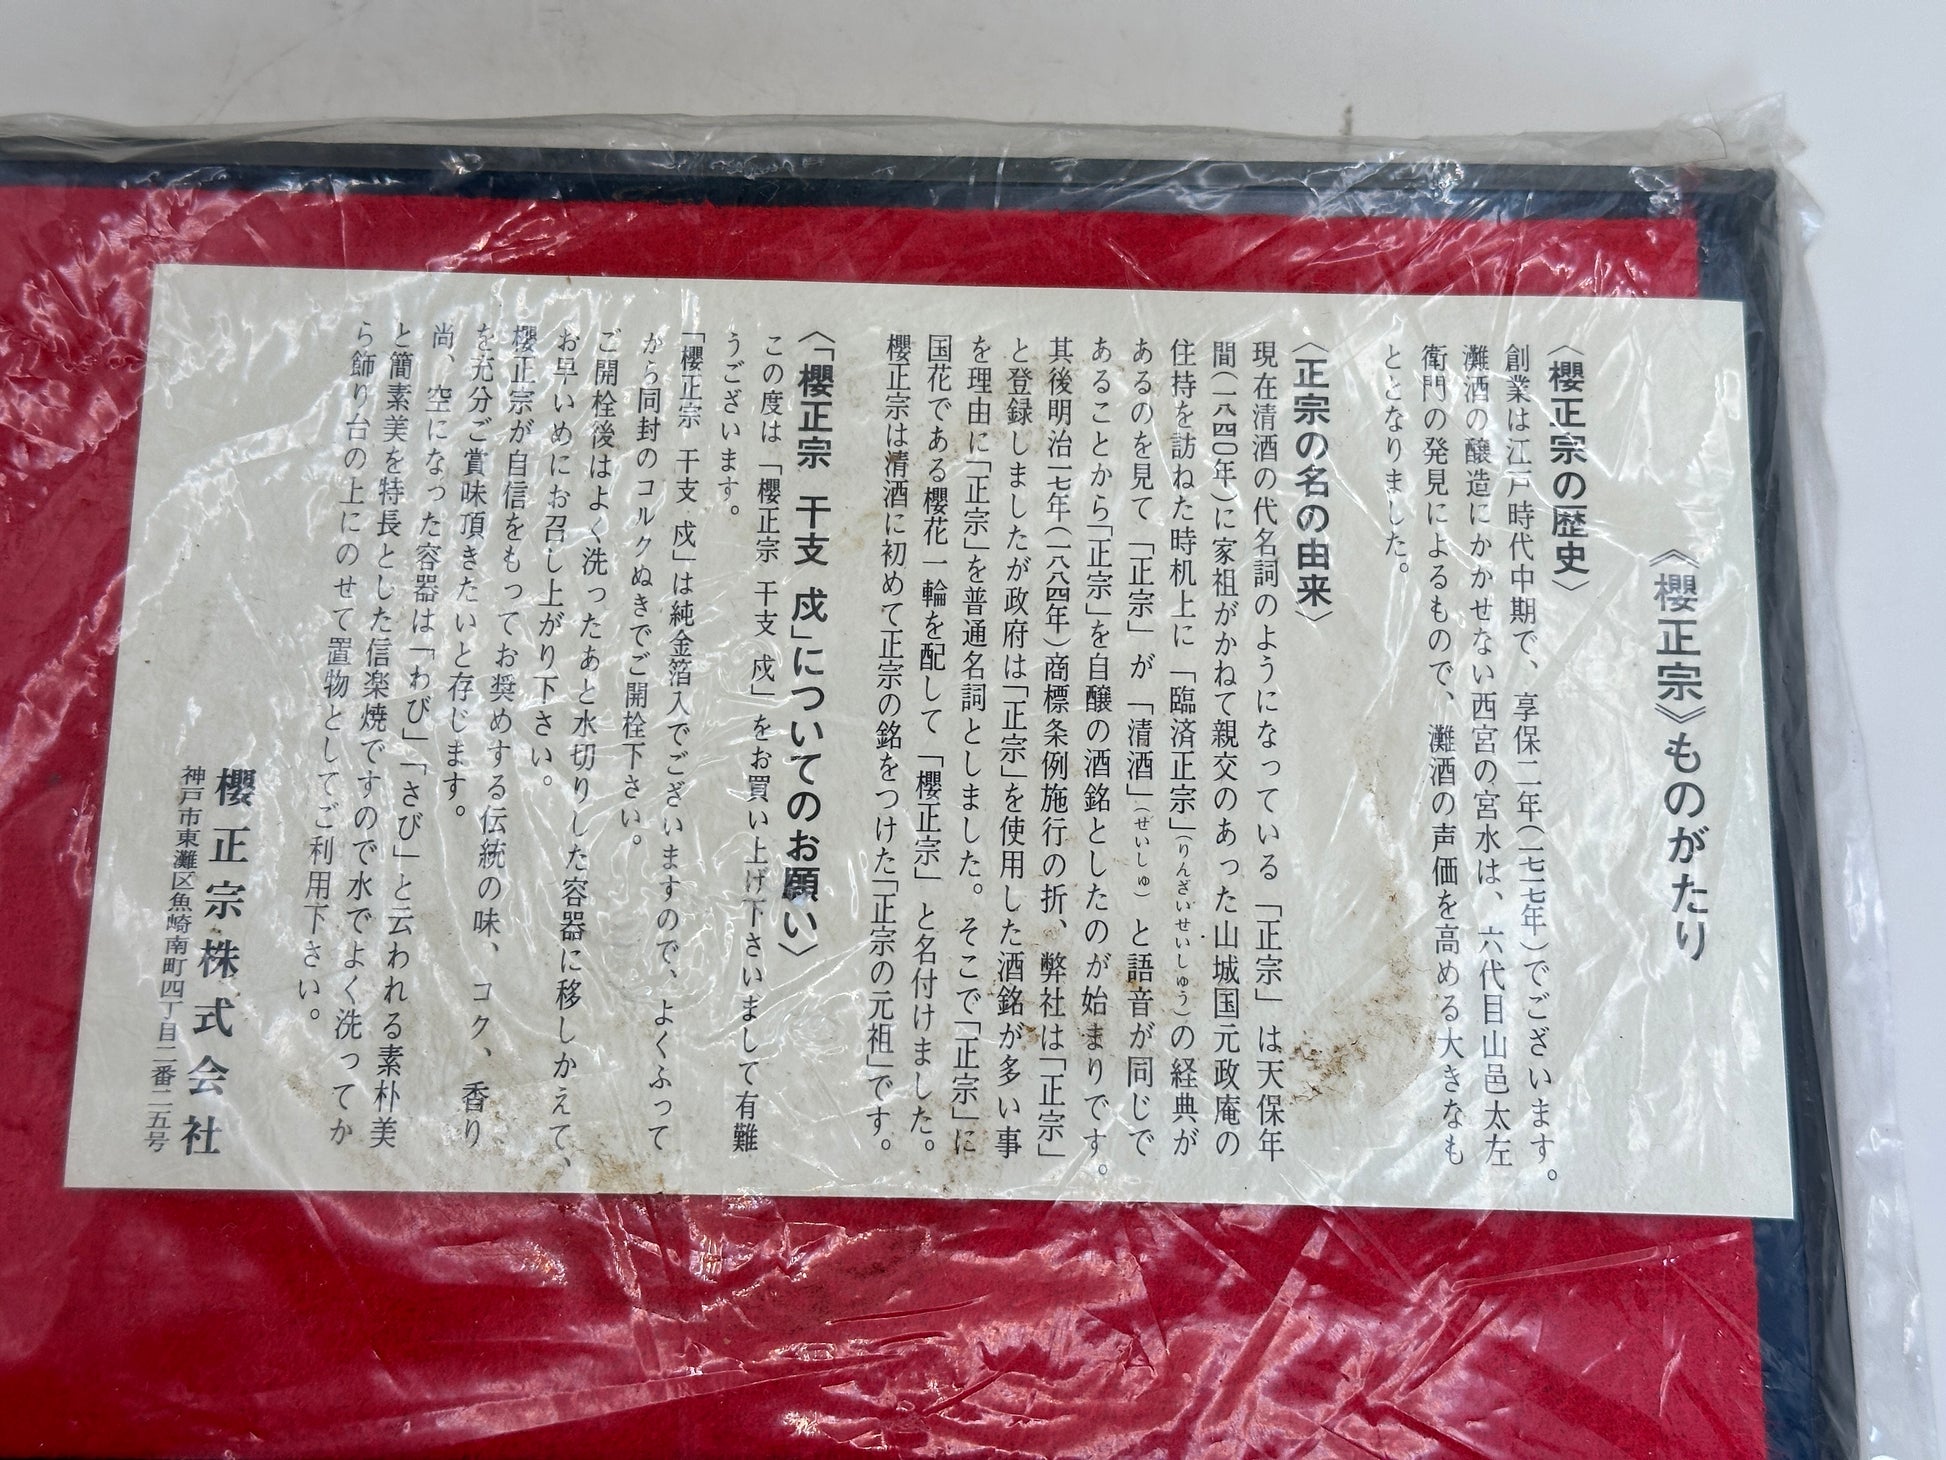 《櫻正宗》ものがたり
〈櫻正宗の歴史〉
創業は江戸時代中期で、享保二年(一七一七年)でございます。
灘酒の醸造にかかせない西宮の宮水は、六代目山邑太左
衛門の発見によるもので、灘酒の声価を高める大きなも
ととなりました。
〈正宗の名の由来〉
現在清酒の代名詞のようになっている「正宗」は天保年
間(一八四〇年)に家祖がかねて親交のあった山城国元政庵の
住持を訪ねた時机上に「臨済正宗」(りんざいせいしゅう)の経典が
あるのを見て「正宗」が「清酒」(せいしゅ)と語音が同じで
あることから「正宗」を自醸の酒銘としたのが始まりです。
其後明治一七年(一八八四年)商標条例施行の折、弊社は「正宗」
と登録しましたが政府は「正宗」を使用した酒銘が多い事
を理由に「正宗」を普通名詞としました。そこで「正宗」に
国花である櫻花一輪を配して「櫻正宗」と名付けました。
櫻正宗は清酒に初めて正宗の銘をつけた「正宗の元祖」です。
〈「櫻正宗 干支 戍」についてのお願い〉
この度は「櫻正宗 干支 戍」をお買い上げ下さいまして有難
うございます。
「櫻正宗 干支 戍」は純金箔入でございますので、よくふって
から同封のコルクぬきでご開栓下さい。
ご開栓後はよく洗ったあと水切りした容器に移しかえて、
お早いめにお召し上がり下さい。
櫻正宗が自信をもってお奨めする伝統の味、コク、香り
を充分ご賞味頂きたいと存じます。
尚、空になった容器は「わび」「さび」と云われる素朴美
と簡素美を特長とした信楽焼ですので水でよく洗ってか
ら飾り台の上にのせて置物としてご利用下さい。
櫻正宗株式会社
神戸市東灘区魚崎南町四丁目二番二五号